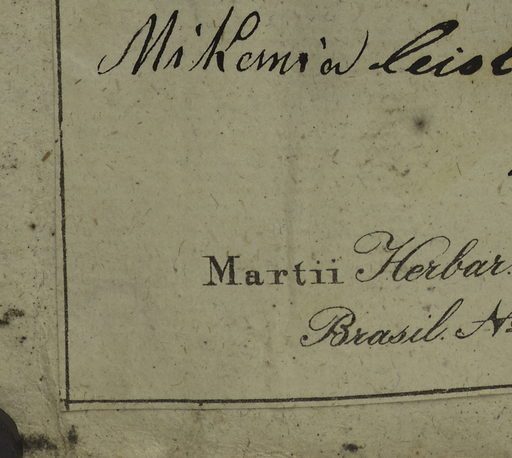 Mikania leist
Martii Herbar.
Brasil. No